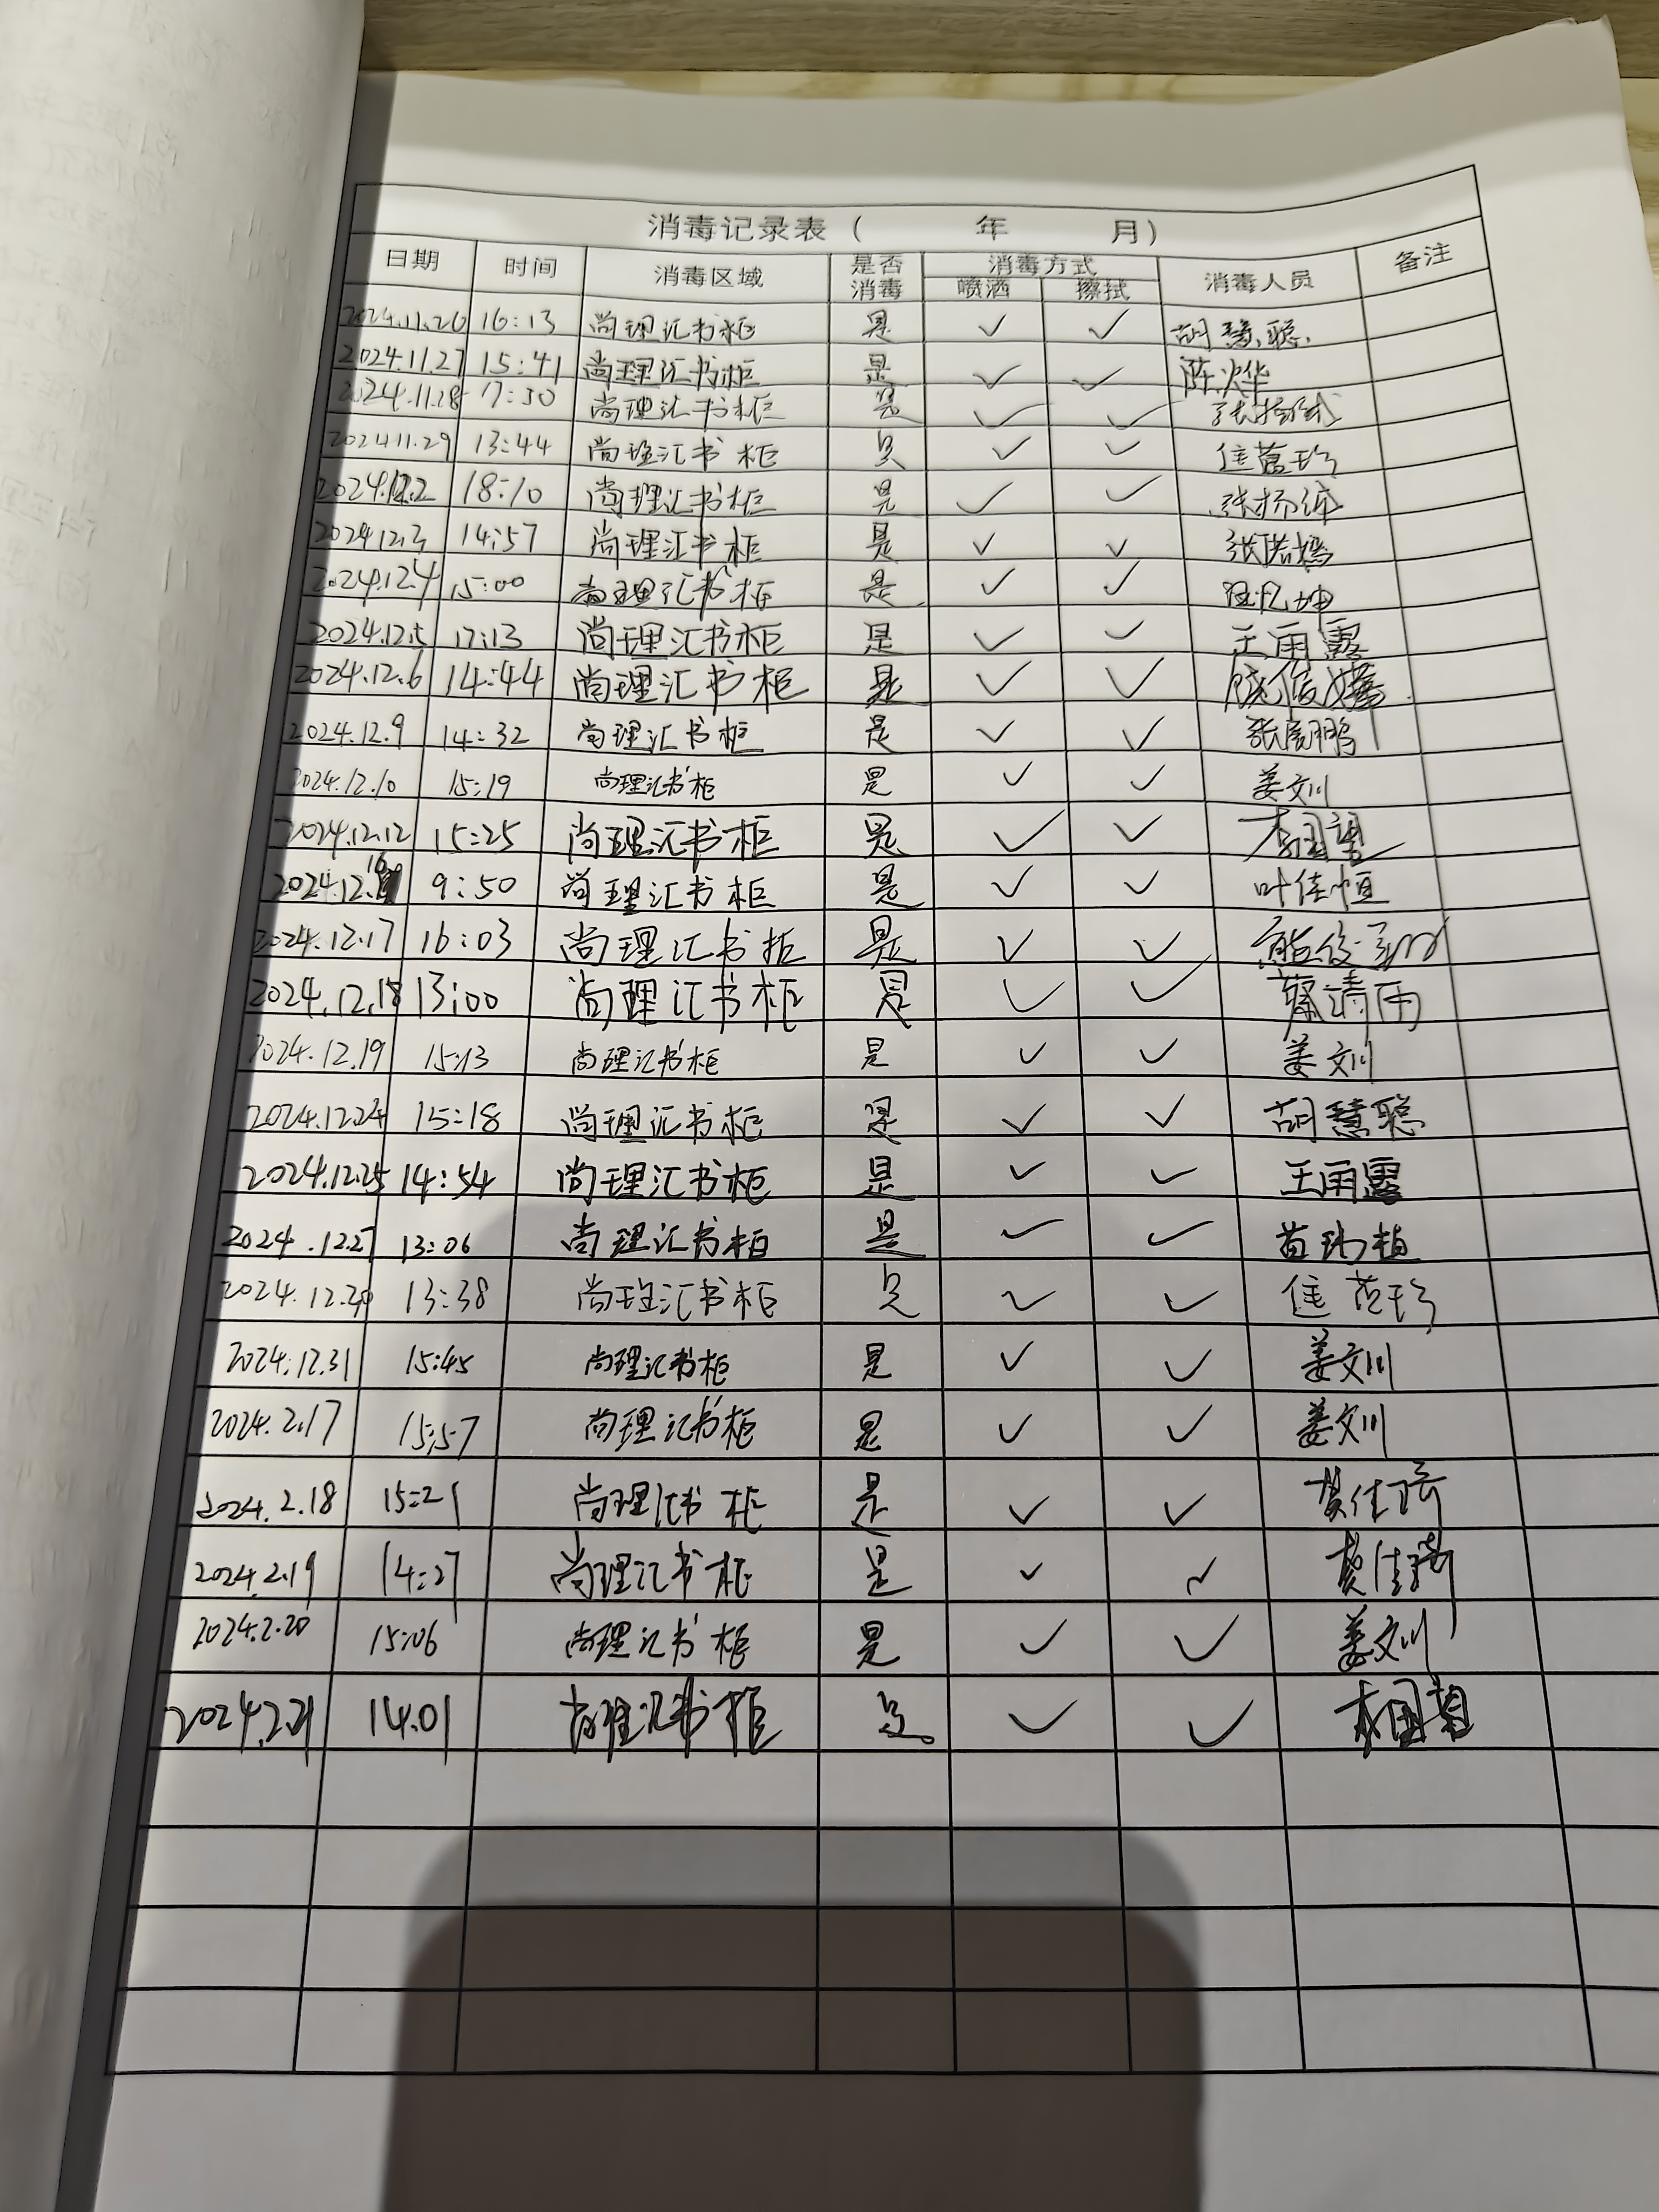 消毒记录表（ 年 月）
日期 时间 消毒区域 是否消毒 消毒方式 喷洒 擦拭 消毒人员 备注
2024.11.26 16:13 尚理汇书柜 是 ✓ ✓ 胡慧聪
2024.11.27 15:41 尚理汇书柜 是 ✓ ✓ 陈烨
2024.11.28 17:30 尚理汇书柜 是 ✓ ✓
2024.11.29 13:44 尚理汇书柜 是 ✓ ✓
2024.12.2 18:10 尚理汇书柜 是 ✓ ✓
2024.12.3 14:57 尚理汇书柜 是 ✓ ✓
2024.12.4 15:00 尚理汇书柜 是 ✓ ✓
2024.12.5 17:13 尚理汇书柜 是 ✓ ✓ 王雨露
2024.12.6 14:44 尚理汇书柜 是 ✓ ✓
2024.12.9 14:32 尚理汇书柜 是 ✓ ✓
2024.12.10 15:19 尚理汇书柜 是 ✓ ✓ 姜文川
2024.12.12 15:25 尚理汇书柜 是 ✓ ✓
2024.12.16 9:50 尚理汇书柜 是 ✓ ✓ 叶佳恒
2024.12.17 16:03 尚理汇书柜 是 ✓ ✓
2024.12.18 13:00 尚理汇书柜 是 ✓ ✓
2024.12.19 15:13 尚理汇书柜 是 ✓ ✓ 姜文川
2024.12.24 15:18 尚理汇书柜 是 ✓ ✓ 胡慧聪
2024.12.25 14:54 尚理汇书柜 是 ✓ ✓ 王雨露
2024.12.27 13:06 尚理汇书柜 是 ✓ ✓
2024.12.30 13:38 尚理汇书柜 是 ✓ ✓
2024.12.31 15:45 尚理汇书柜 是 ✓ ✓ 姜文川
2024.2.17 15:57 尚理汇书柜 是 ✓ ✓ 姜文川
2024.2.18 15:21 尚理汇书柜 是 ✓ ✓
2024.2.19 14:27 尚理汇书柜 是 ✓ ✓
2024.2.20 15:06 尚理汇书柜 是 ✓ ✓ 姜文川
2024.2.21 14:01 尚理汇书柜 是 ✓ ✓